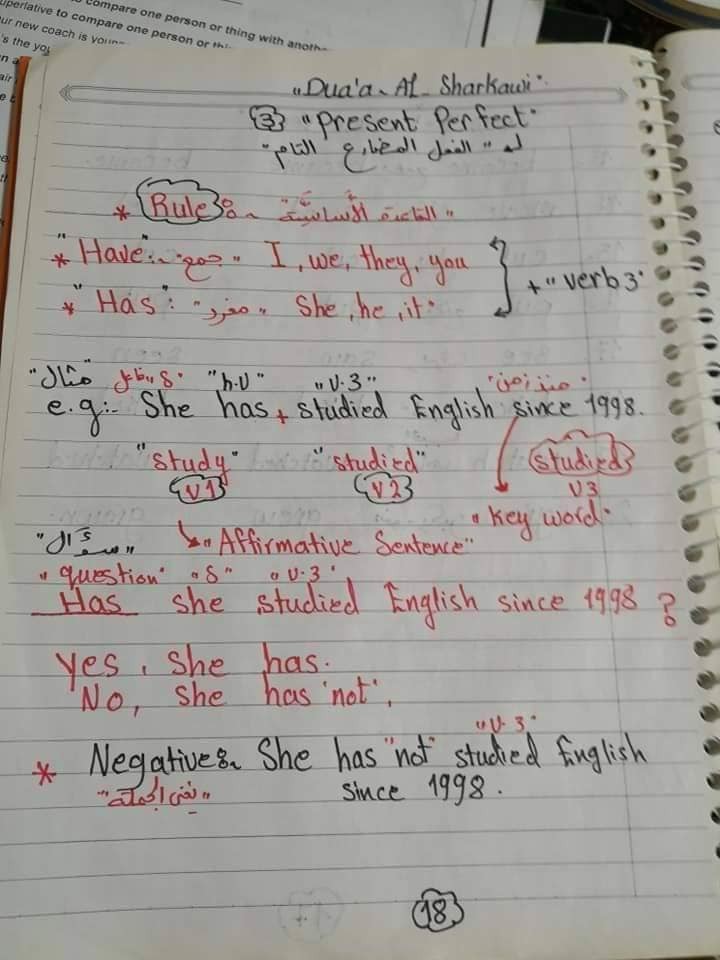 superlative to compare one person or thing with anoth
ur new coach is young
's the you
"Dua'a - Al - Sharkawi"
[3] "Present Perfect"
له "الفعل المضارع التام"
* Rule :- "القاعدة الأساسية"
* "Have" :- "جمع" I, we, they, you
* "Has" : "مفرد" She, he, it
+ "verb 3"
"مثال" "فاعل S" "h.v" "v.3" "منذ زمن"
e.g:- She has + studied English since 1998.
"study" "studied" studied
V1 V2 V3
"Key word"
"سؤال" "Affirmative Sentence"
"question" "S" "v.3"
Has she studied English since 1998 ?
Yes, She has.
No, she has 'not'.
"v.3"
* Negative:- She has "not" studied English
"نفي الجملة" since 1998.
18